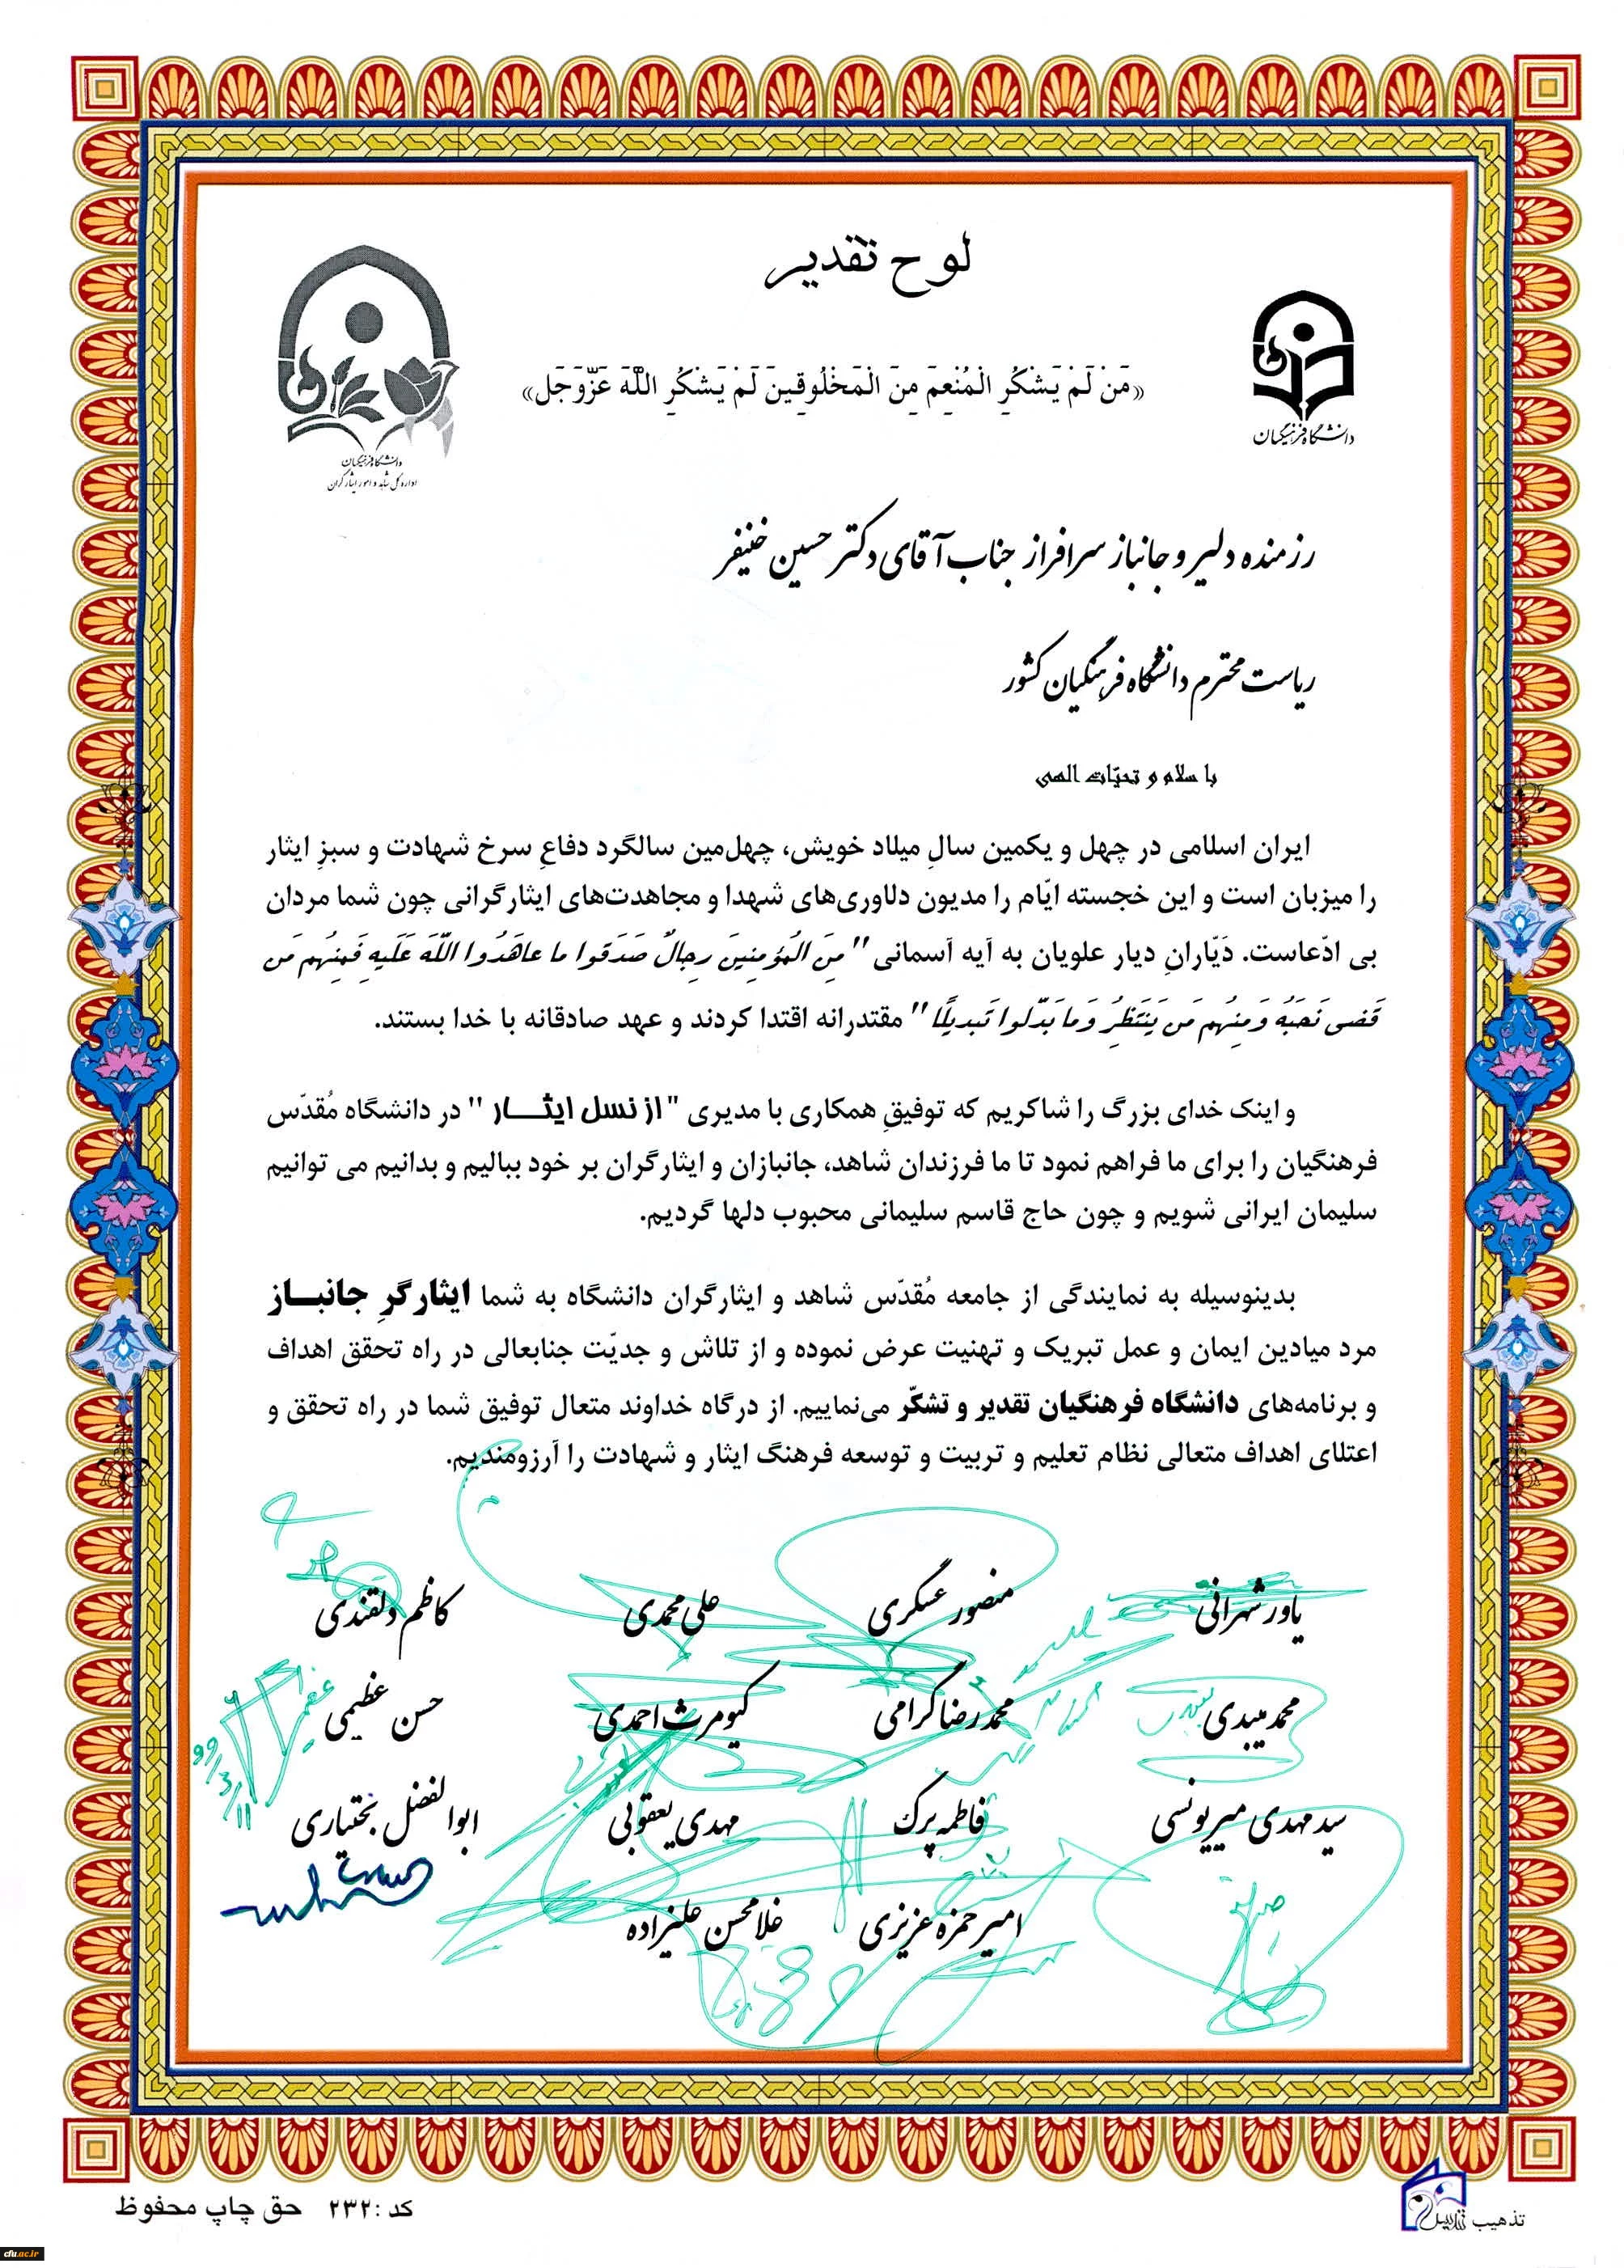 لوح تقدیر
«مَنْ لَمْ یَشْکُرِ الْمُنْعِمَ مِنَ الْمَخْلُوقِینَ لَمْ یَشْکُرِ اللَّهَ عَزَّوَجَل»
دانشگاه فرهنگیان
دانشگاه فرهنگیان
اداره کل شاهد و امور ایثارگران
رزمنده دلیر و جانباز سرافراز جناب آقای دکتر حسین خنیفر
ریاست محترم دانشگاه فرهنگیان کشور
با سلام و تحیّات الهی
ایران اسلامی در چهل و یکمین سالِ میلاد خویش، چهل‌مین سالگرد دفاعِ سرخ شهادت و سبزِ ایثار
را میزبان است و این خجسته ایّام را مدیون دلاوری‌های شهدا و مجاهدت‌های ایثارگرانی چون شما مردان
بی ادّعاست. دَیّارانِ دیار علویان به آیه آسمانی "مِنَ المُؤمِنینَ رِجالٌ صَدَقوا ما عاهَدُوا اللَّهَ عَلَیهِ فَمِنهُم مَن
قَضی نَحبَهُ وَمِنهُم مَن یَنتَظِرُ وَما بَدَّلوا تَبدیلًا" مقتدرانه اقتدا کردند و عهد صادقانه با خدا بستند.
و اینک خدای بزرگ را شاکریم که توفیقِ همکاری با مدیری "از نسل ایثــار" در دانشگاه مُقدّس
فرهنگیان را برای ما فراهم نمود تا ما فرزندان شاهد، جانبازان و ایثارگران بر خود ببالیم و بدانیم می توانیم
سلیمان ایرانی شویم و چون حاج قاسم سلیمانی محبوب دلها گردیم.
بدینوسیله به نمایندگی از جامعه مُقدّس شاهد و ایثارگران دانشگاه به شما ایثارگرِ جانبــاز
مرد میادین ایمان و عمل تبریک و تهنیت عرض نموده و از تلاش و جدیّت جنابعالی در راه تحقق اهداف
و برنامه‌های دانشگاه فرهنگیان تقدیر و تشکّر می‌نماییم. از درگاه خداوند متعال توفیق شما در راه تحقق و
اعتلای اهداف متعالی نظام تعلیم و تربیت و توسعه فرهنگ ایثار و شهادت را آرزومندیم.
یاور شهرانی منصور عسگری علی محمدی کاظم دلقندی
محمد میبدی محمدرضا گرامی کیومرث احمدی حسن عظیمی
سید مهدی میریونسی فاطمه پرک مهدی یعقوبی ابوالفضل بختیاری
امیر حمزه عزیزی غلامحسن علیزاده
۹۹/۳/۱۱
تذهیب تندیس
کد :۲۳۲ حق چاپ محفوظ
cfu.ac.ir